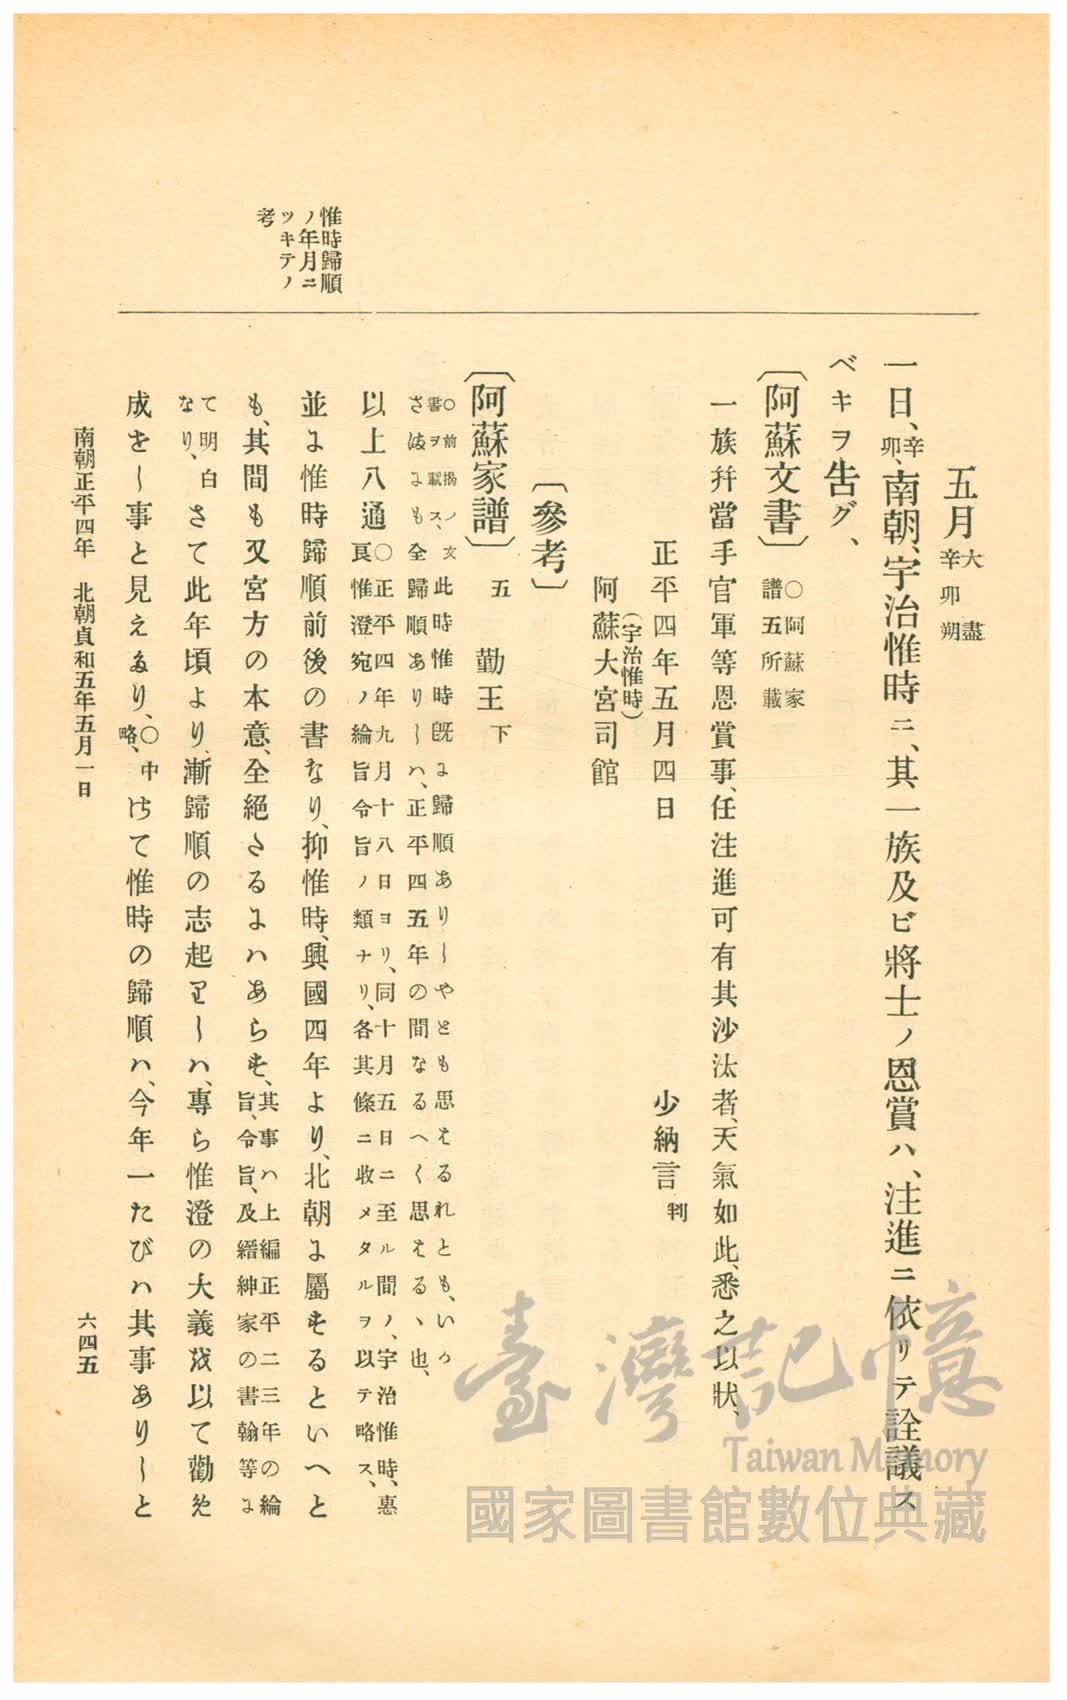 五月 大盡 辛卯朔
一日、辛卯、南朝、宇治惟時ニ、其一族及ビ將士ノ恩賞ハ、注進ニ依リテ詮議ス
ベキヲ吿グ、
〔阿蘇文書〕 ○阿蘇家譜五所載
一族幷當手官軍等恩賞事、任注進可有其沙汰者、天氣如此、悉之以狀、
正平四年五月四日 少納言判
(宇治惟時)
阿蘇大宮司館
〔參考〕
〔阿蘇家譜〕 五 勤王下
○前揭ノ文書ヲ載ス、此時惟時旣に歸順ありしやとも思はるれとも、いつ
さはにも全歸順ありしハ、正平四五年の間なるへく思はるゝ也、
以上八通○正平四年九月十八日ヨリ、同十月五日ニ至ル間ノ、宇治惟時、惠良惟澄宛ノ綸旨令旨ノ類ナリ、各其條ニ收メタルヲ以テ略ス、
並に惟時歸順前後の書なり、抑惟時、興國四年より、北朝に屬するといへと
も、其間も又宮方の本意、全絕たるにハあらす、其事ハ上編正平二三年の綸旨、令旨、及縉紳家の書翰等に
て明白なり、さて此年頃より、漸歸順の志起りしハ、專ら惟澄の大義を以て勸め
成をし事と見えたり、○中略、けて惟時の歸順ハ、今年一たびハ其事ありしと
惟時歸順
ノ年月ニ
ツキテノ
考
南朝正平四年 北朝貞和五年五月一日
六四五
臺灣記憶
Taiwan Memory
國家圖書館數位典藏